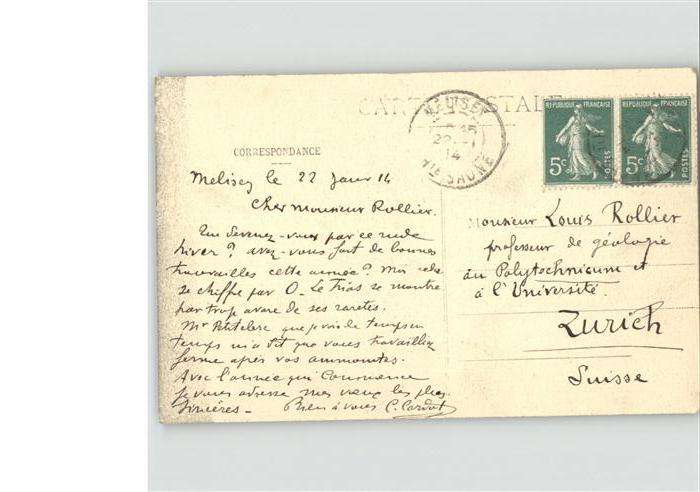 CARTE POSTALE
MELISEY
22 -1
14
Hte SAONE
REPUBLIQUE FRANÇAISE
5c
POSTES
REPUBLIQUE FRANÇAISE
5c
POSTES
CORRESPONDANCE
Melisey le 22 Janv 14
Cher Monsieur Rollier.
Que devenez-vous par ce rude
hiver? avez-vous fait de bonnes
trouvailles cette année? Moi cela
se chiffre par 0. Le Trias se montre
par trop avare de ses raretés.
Mr Petitclerc que je vois de temps en
temps m'a dit que vous travailliez
ferme après vos ammonites.
Avec l'année qui Commence
je vous adresse mes vœux les plus
sincères - Bien à vous C. Cardot
Monsieur Louis Rollier
professeur de géologie
au Polytechnicum et
à l'Université.
Zurich
Suisse